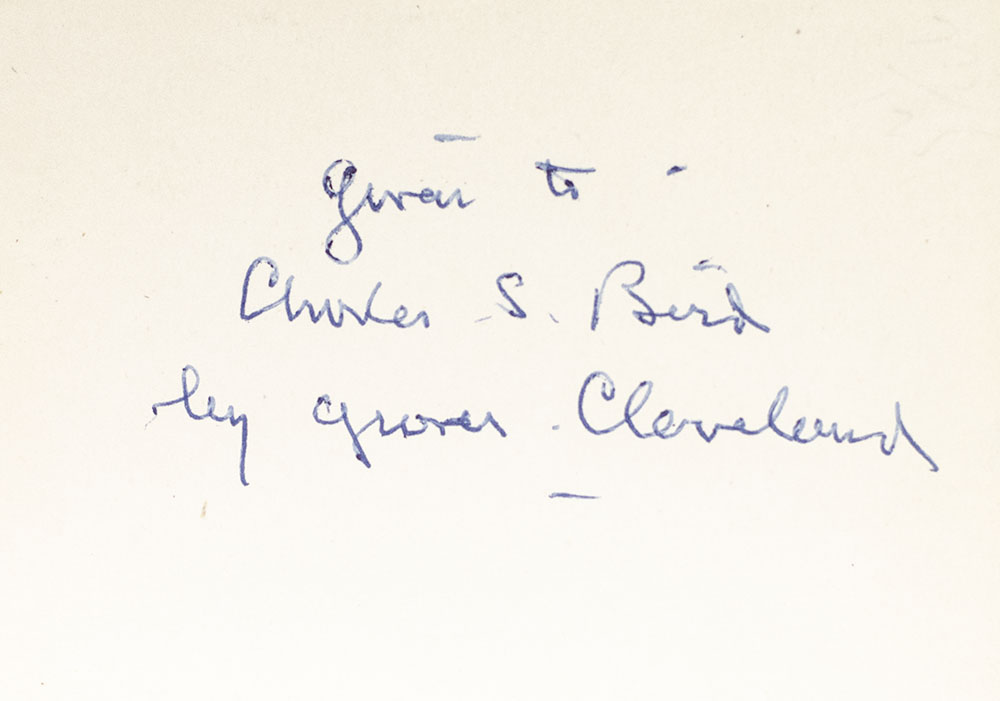 Given to
Charles S. Bird
by Grover Cleveland